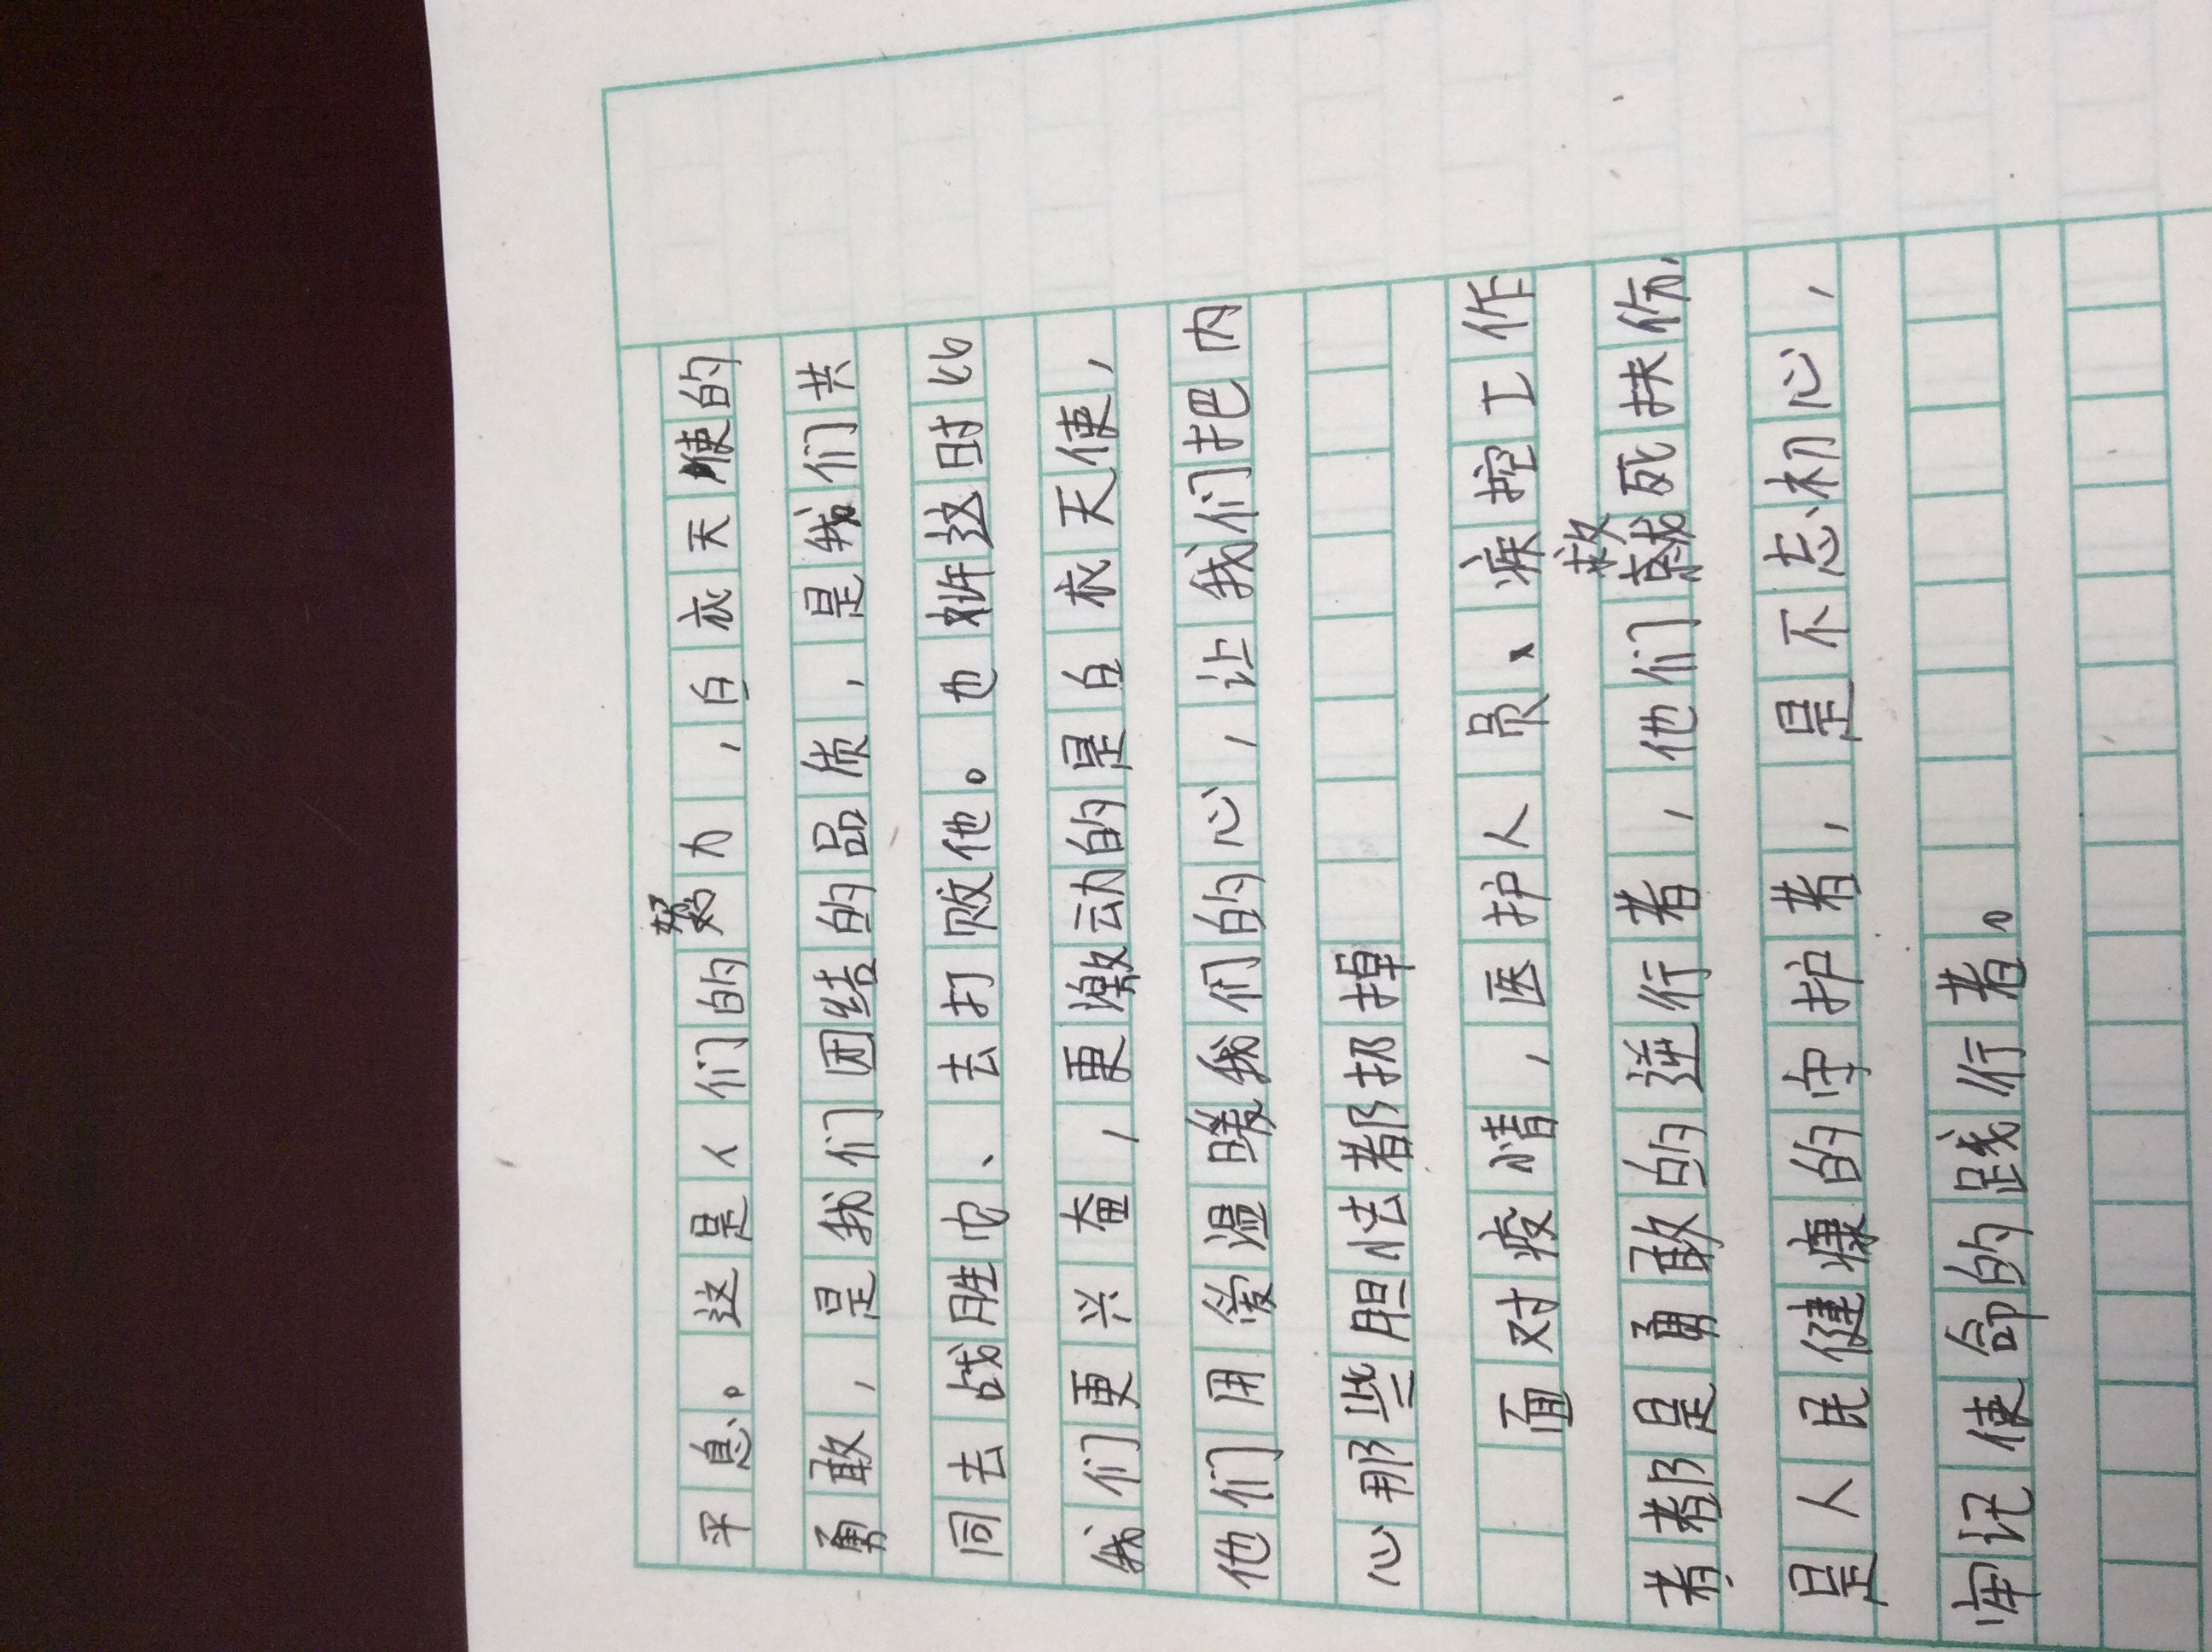 平息。这是人们的努力，白衣天使的
勇敢，是我们团结的品质，是我们共
同去战胜它、去打败他。也许这时比
我们更兴奋，更激动的是白衣天使，
他们用爱温暖我们的心，让我们把内
心那些胆怯都扔掉
面对疫情，医护人员、疾控工作
者都是勇敢的逆行者，他们救死扶伤，
是人民健康的守护者，是不忘初心，
牢记使命的践行者。